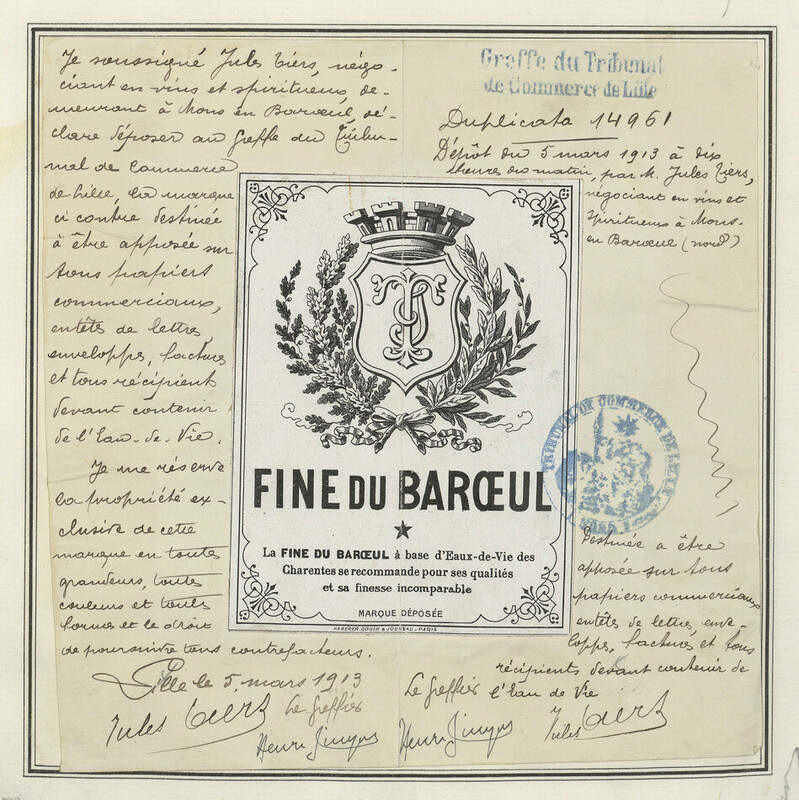 Je soussigné Jules Tiers, négo-
ciant en vins et spiritueux, de-
meurant à Mons en Barœul, dé-
clare déposer au Greffe du Tribu-
nal de Commerce
de Lille, la marque
ci contre destinée
à être apposée sur
tous papiers
commerciaux,
entêtes de lettres,
enveloppes, factures
et tous récipient
devant contenir
de l'Eau-de-Vie.
Je me réserve
la propriété ex-
clusive de cette
marque en toutes
grandeurs, toutes
couleurs et toutes
formes et le droit
de poursuivre tous contrefacteurs.
Lille le 5 mars 1913
Jules Tiers
Le Greffier
Henri
Greffe du Tribunal
de Commerce de Lille
Duplicata 14961
Dépôt du 5 mars 1913 à dix
heures du matin, par M. Jules Tiers,
négociant en vins et
spiritueux à Mons-
en Barœul (nord)
FINE DU BARŒUL
La FINE DU BARŒUL à base d'Eaux-de-Vie des
Charentes se recommande pour ses qualités
et sa finesse incomparable
MARQUE DÉPOSÉE
HABERER DOUIN & JOUNEAU-PARIS
TRIBUNAL DE COMMERCE DE LILLE
(NORD)
Destinée a être
apposée sur tous
papiers commerciaux
entêtes de lettres, enve-
loppes, factures et tous
récipients devant contenir de
l'Eau de Vie
Le Greffier
Henri
Jules Tiers